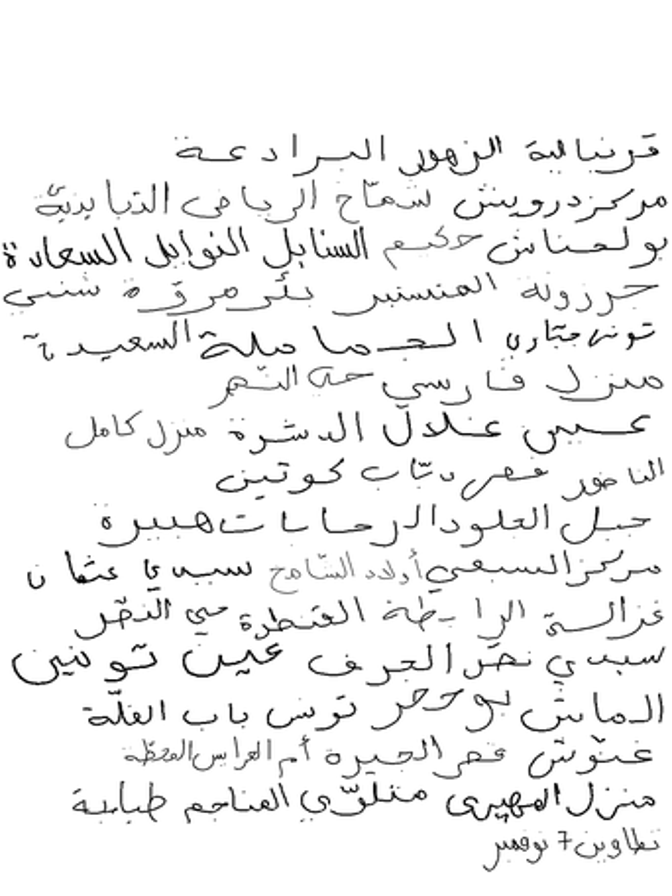 قرنبالية الزهور البرادعة
مركز درويش شماخ الرياض الذبابينة
بولحناش حكيم السنابل النوايل السعادة
جرزونة المنستير بئر مروة شنني
تونس حتاري الجماملة السعيدة
منزل فارسي حي النسيم
عين غلال الدشرة منزل كامل
الناظور قصر دباب كوتين
جبل العلود الرحابات هبيرة
مركز السبعي أولاد الشامخ سيدي عثمان
غزالة الرابطة القنطرة حي النخل
سيدي نصر الجرف عين تونين
الماش بوحجر تونس باب الفلة
غنوش قصر الجيرة أم العرايس المحطة
منزل المهيري متلوي المناجم طبابة
تطاوين 7 نوفمبر